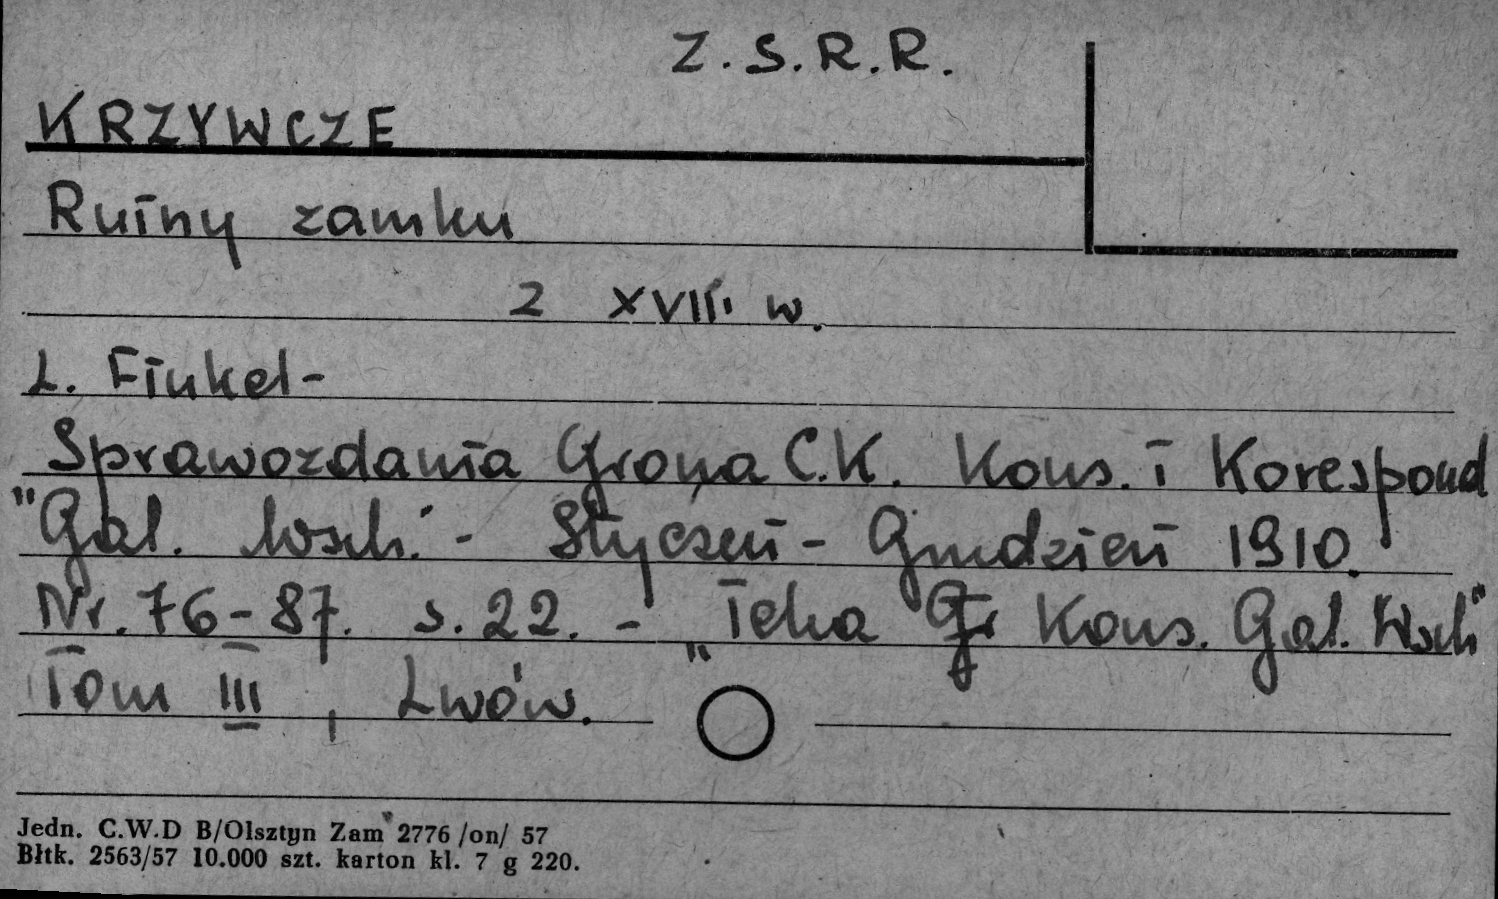 Z.S.R.R.
KRZYWCZE
Ruiny zamku
z XVII w.
L. Finkel -
Sprawozdania Grona C.K. Kons. i Korespond
"Gal. Wsch." - Styczeń - Grudzień 1910.
Nr. 76-87. s. 22. - "Teka Gr Kons. Gal. Wsch"
Tom III, Lwów.
Jedn. C.W.D B/Olsztyn Zam 2776 /on/ 57
Błtk. 2563/57 10.000 szt. karton kl. 7 g 220.